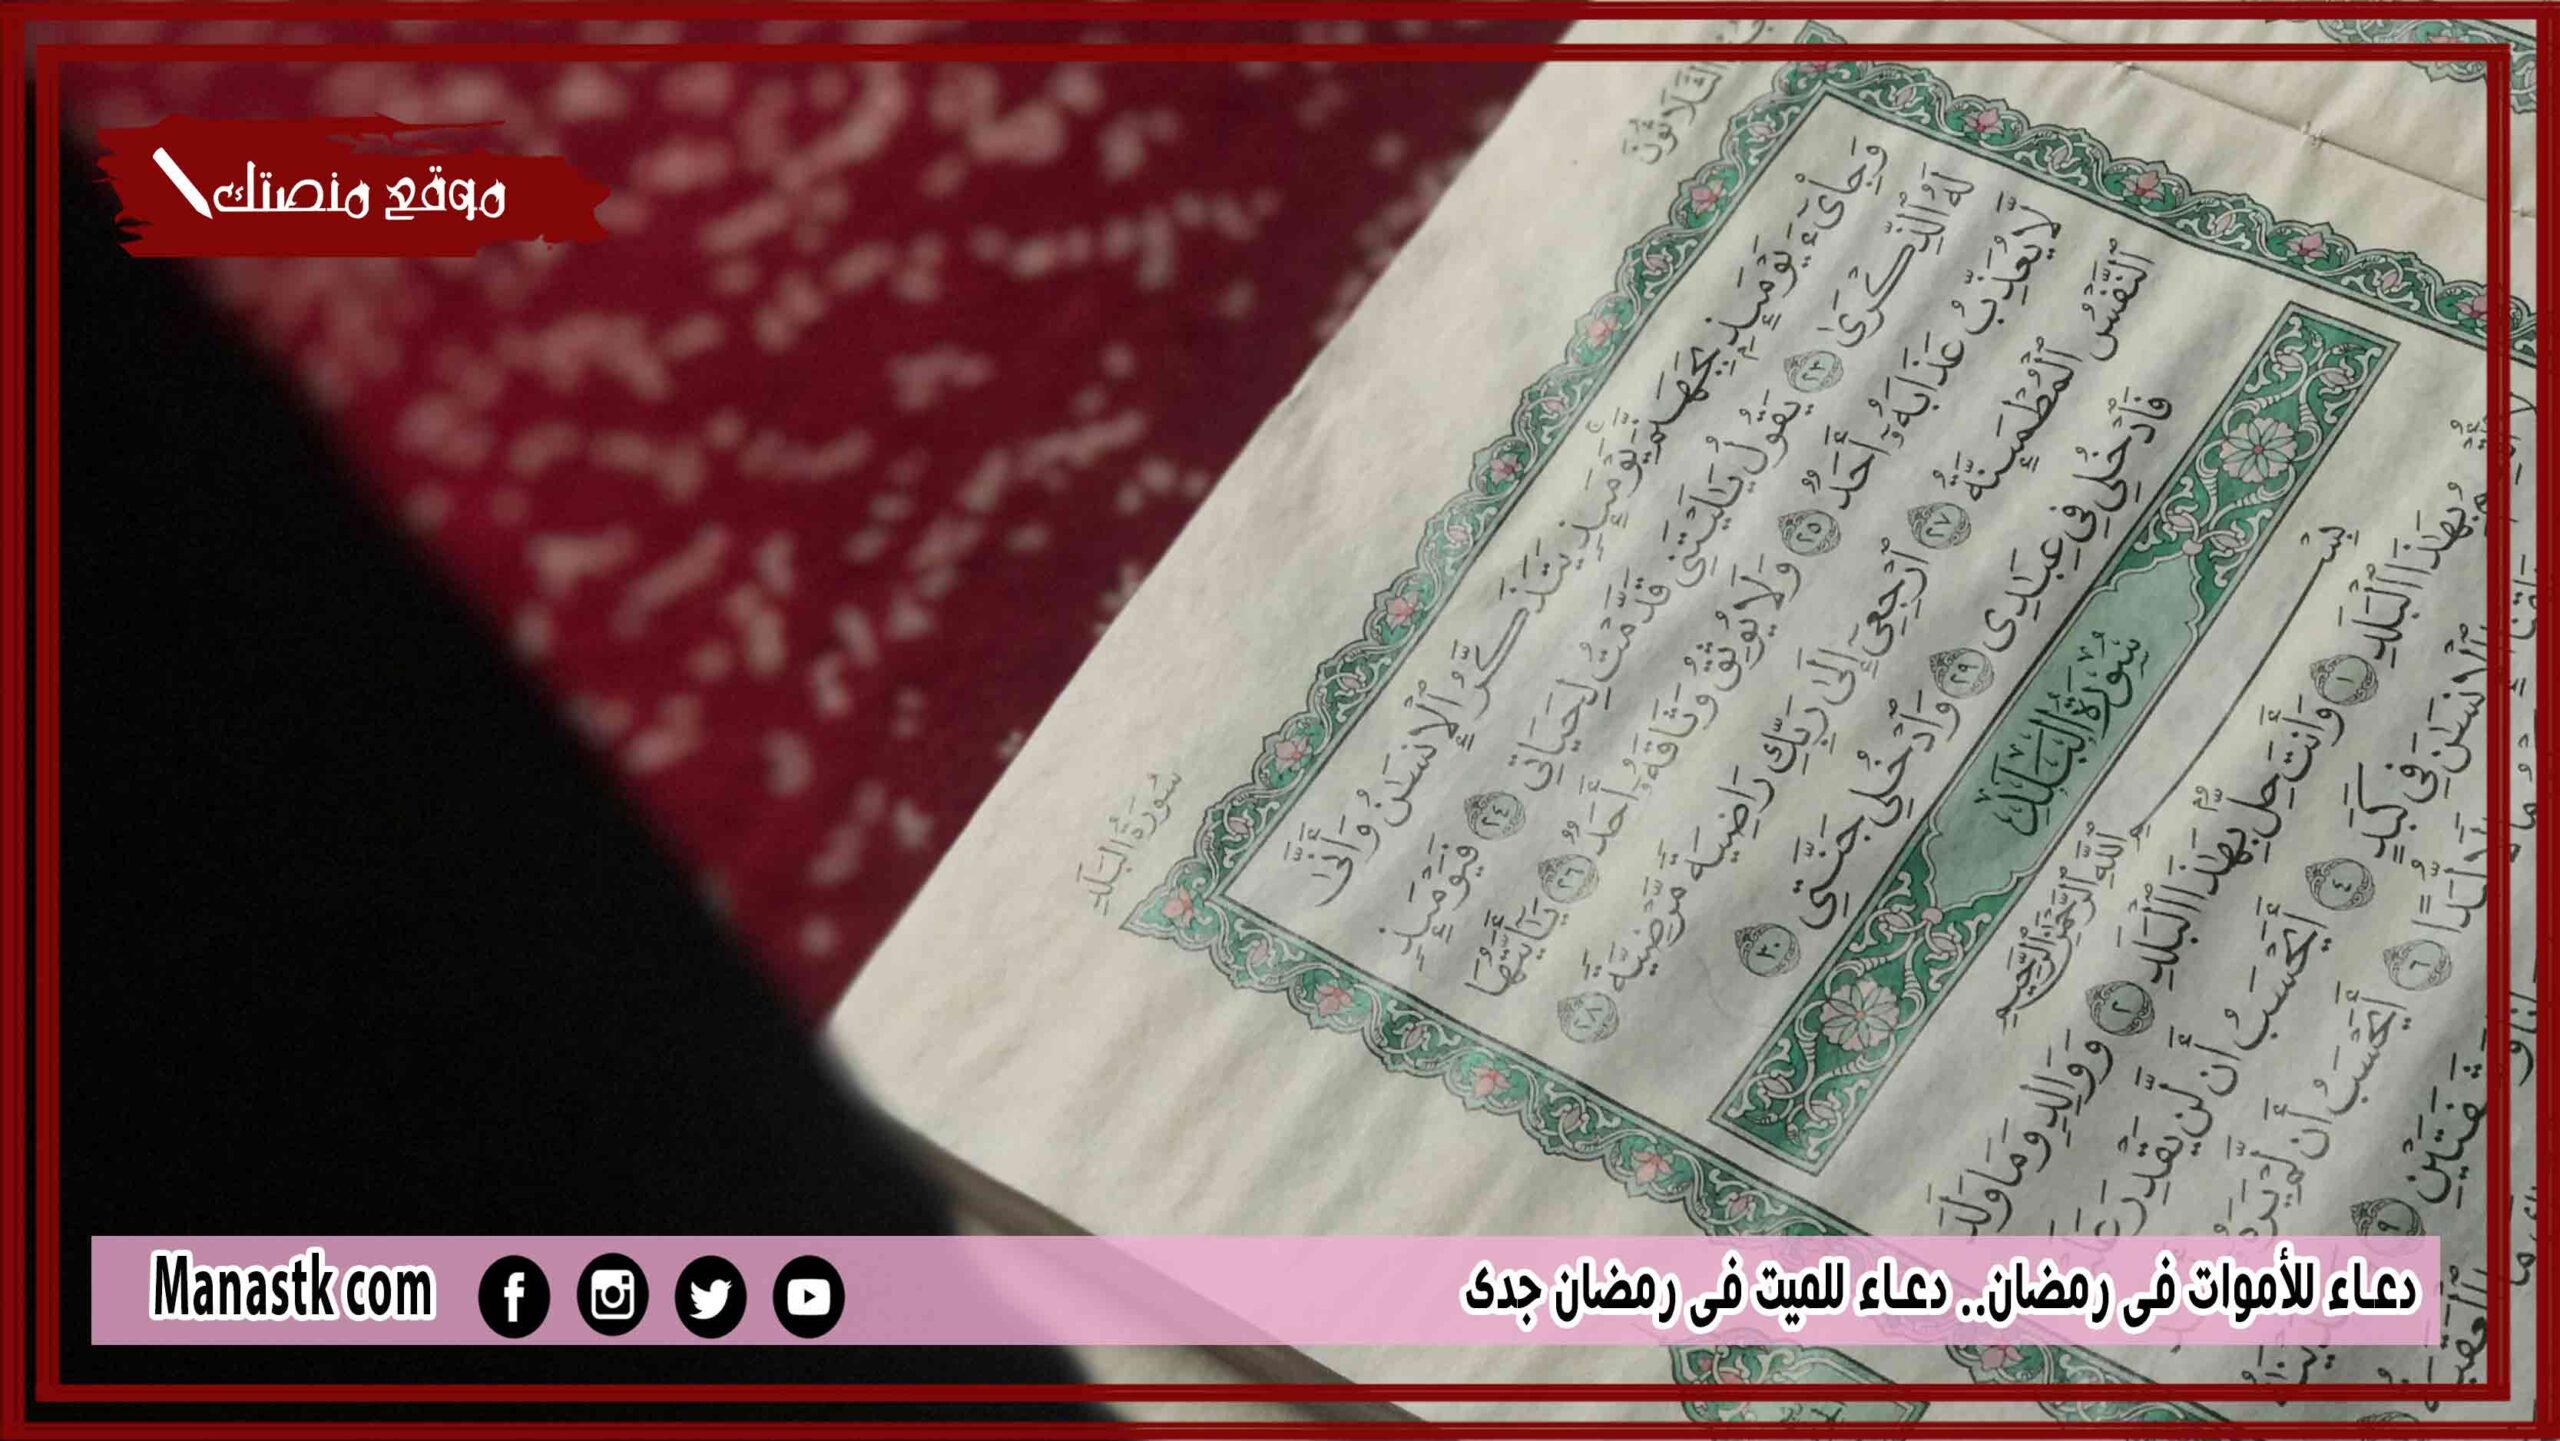 موقع منصتك
الجزء الثلاثون
سُورَةُ البَلَدِ
وَجِاْىٓءَ يَوْمَئِذٍۭ بِجَهَنَّمَ يَوْمَئِذٍ يَتَذَكَّرُ ٱلْإِنسَٰنُ وَأَنَّىٰ
لَهُ ٱلذِّكْرَىٰ ٢٣ يَقُولُ يَٰلَيْتَنِى قَدَّمْتُ لِحَيَاتِى ٢٤ فَيَوْمَئِذٍ
لَّا يُعَذِّبُ عَذَابَهُۥٓ أَحَدٌ ٢٥ وَلَا يُوثِقُ وَثَاقَهُۥٓ أَحَدٌ ٢٦ يَٰٓأَيَّتُهَا
ٱلنَّفْسُ ٱلْمُطْمَئِنَّةُ ٢٧ ٱرْجِعِىٓ إِلَىٰ رَبِّكِ رَاضِيَةً مَّرْضِيَّةً ٢٨
فَٱدْخُلِى فِى عِبَٰدِى ٢٩ وَٱدْخُلِى جَنَّتِى ٣٠
سُورَةُ البَلَدِ
بِسْمِ ٱللَّهِ ٱلرَّحْمَٰنِ ٱلرَّحِيمِ
بِهَٰذَا ٱلْبَلَدِ ١ وَأَنتَ حِلٌّۢ بِهَٰذَا ٱلْبَلَدِ ٢ وَوَالِدٍ وَمَا وَلَدَ
ٱلْإِنسَٰنَ فِى كَبَدٍ ٤ أَيَحْسَبُ أَن لَّن يَقْدِرَ
لُّبَدًا ٦ أَيَحْسَبُ أَن لَّمْ يَرَهُۥٓ
شَفَتَيْنِ ٩
Manastk com
دعاء للأموات فى رمضان.. دعاء للميت فى رمضان جدى